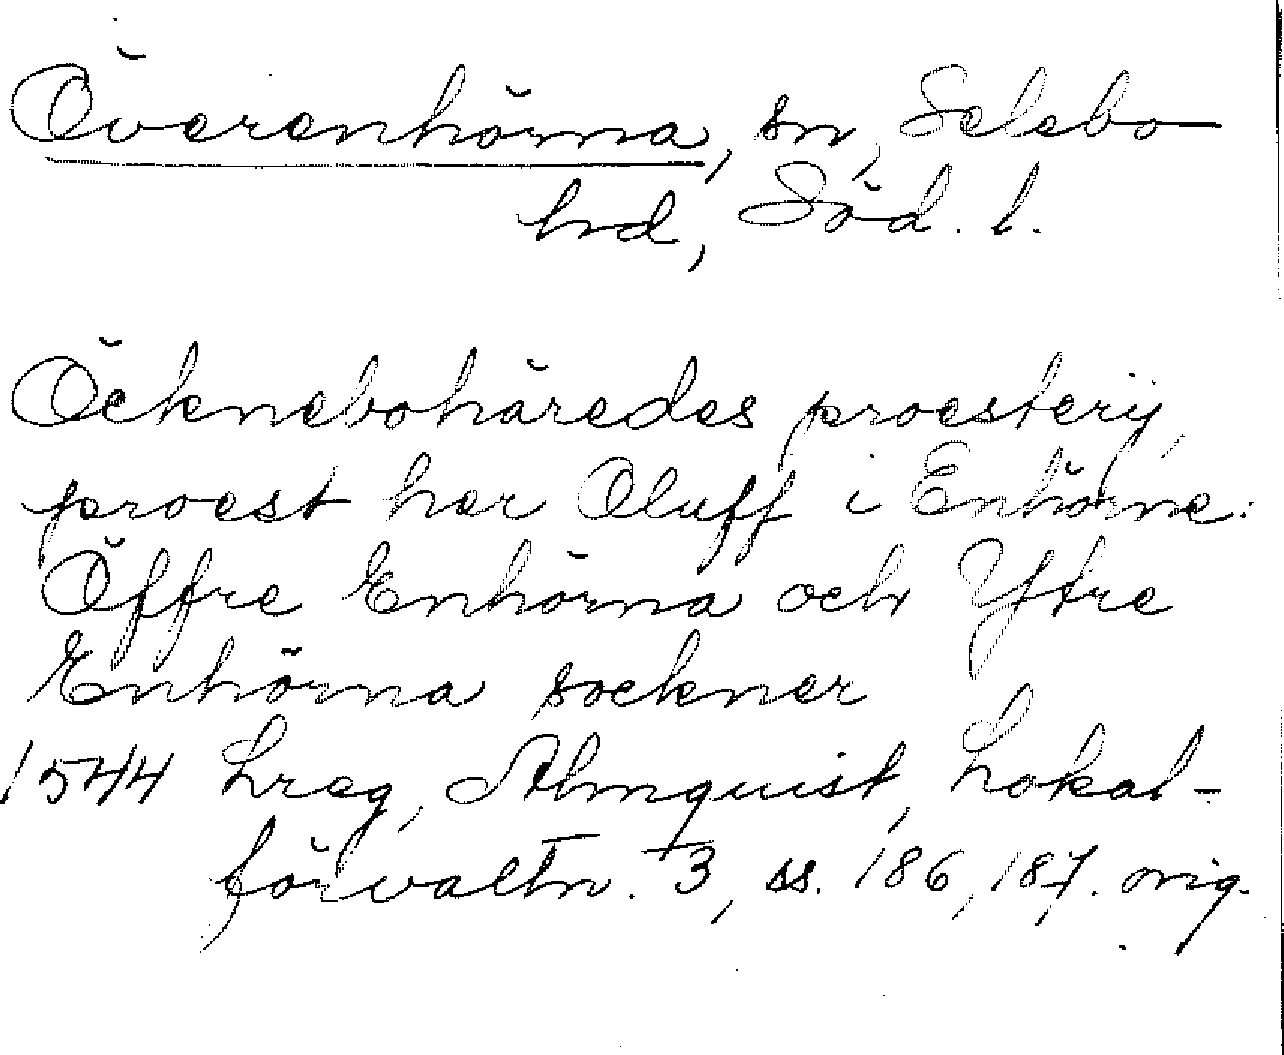 Överenhörna, sn, Selebo
hd, Söd. l.
Öcknebohäredes proesterij,
proest her Oluff i Enhörne:
Öffre Enhörna och Yttre
Enhörna sockner
1544 Lreg, Almquist, Lokal-
förvaltn. 3, ss. 186, 187. orig.